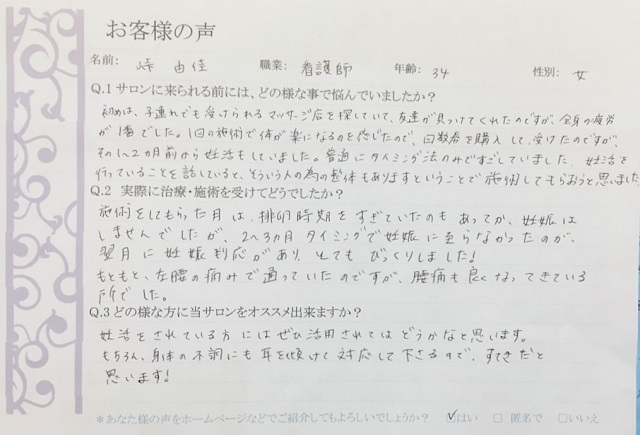 お客様の声
名前: 峰 由佳 職業: 看護師 年齢: 34 性別: 女
Q.1 サロンに来られる前には、どの様な事で悩んでいましたか?
初めは、子連れでも受けられるマッサージ店を探していて、友達が見つけてくれたのですが、全身の疲労
が1番でした。1回の施術で体が楽になるのを感じたので、回数券を購入して受けたのですが、
その1〜2カ月前から妊活もしていました。普通にタイミング法のみですごしていました。妊活を
行っていることを話していると、そういう人の為の整体もありますということで施術してもらおうと思いました
Q.2 実際に治療・施術を受けてどうでしたか?
施術をしてもらった月は、排卵時期をすぎていたのもあってか、妊娠は
しませんでしたが、2〜3カ月タイミングで妊娠に至らなかったのが、
翌月に妊娠判応があり、とてもびっくりしました!
もともと、左腰の痛みで通っていたのですが、腰痛も良くなってきている
所でした。
Q.3 どの様な方に当サロンをオススメ出来ますか?
妊活をされている方にはぜひ活用されてはどうかなと思います。
もちろん、身体の不調にも耳を傾けて対応して下さるので、すてきだと
思います!
*あなた様の声をホームページなどでご紹介してもよろしいでしょうか? ☑はい □ 匿名で □いいえ